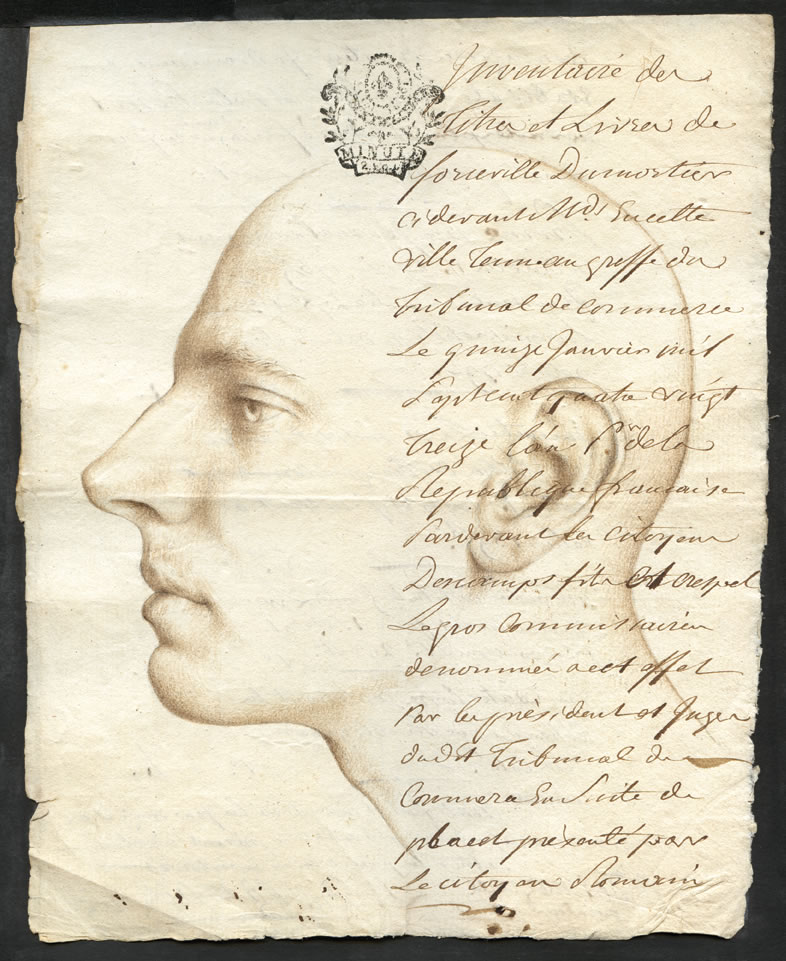 MINUTE
Inventaire des
Titres et Livres de
Dumortier
cidevant Mds.
ville tenu au greffe du
tribunal de commerce
Le quinze Janvier mil
Sept cent quatre vingt
treize l'an 1er de la
Republique francaise
Pardevant les citoyens
Descamps fils et crespel
Legros Commissaires
denommés a cet effet
Par les président et Juges
dudit Tribunal de
Commerce En Suite de
placet présenté par
Le citoyen Romain